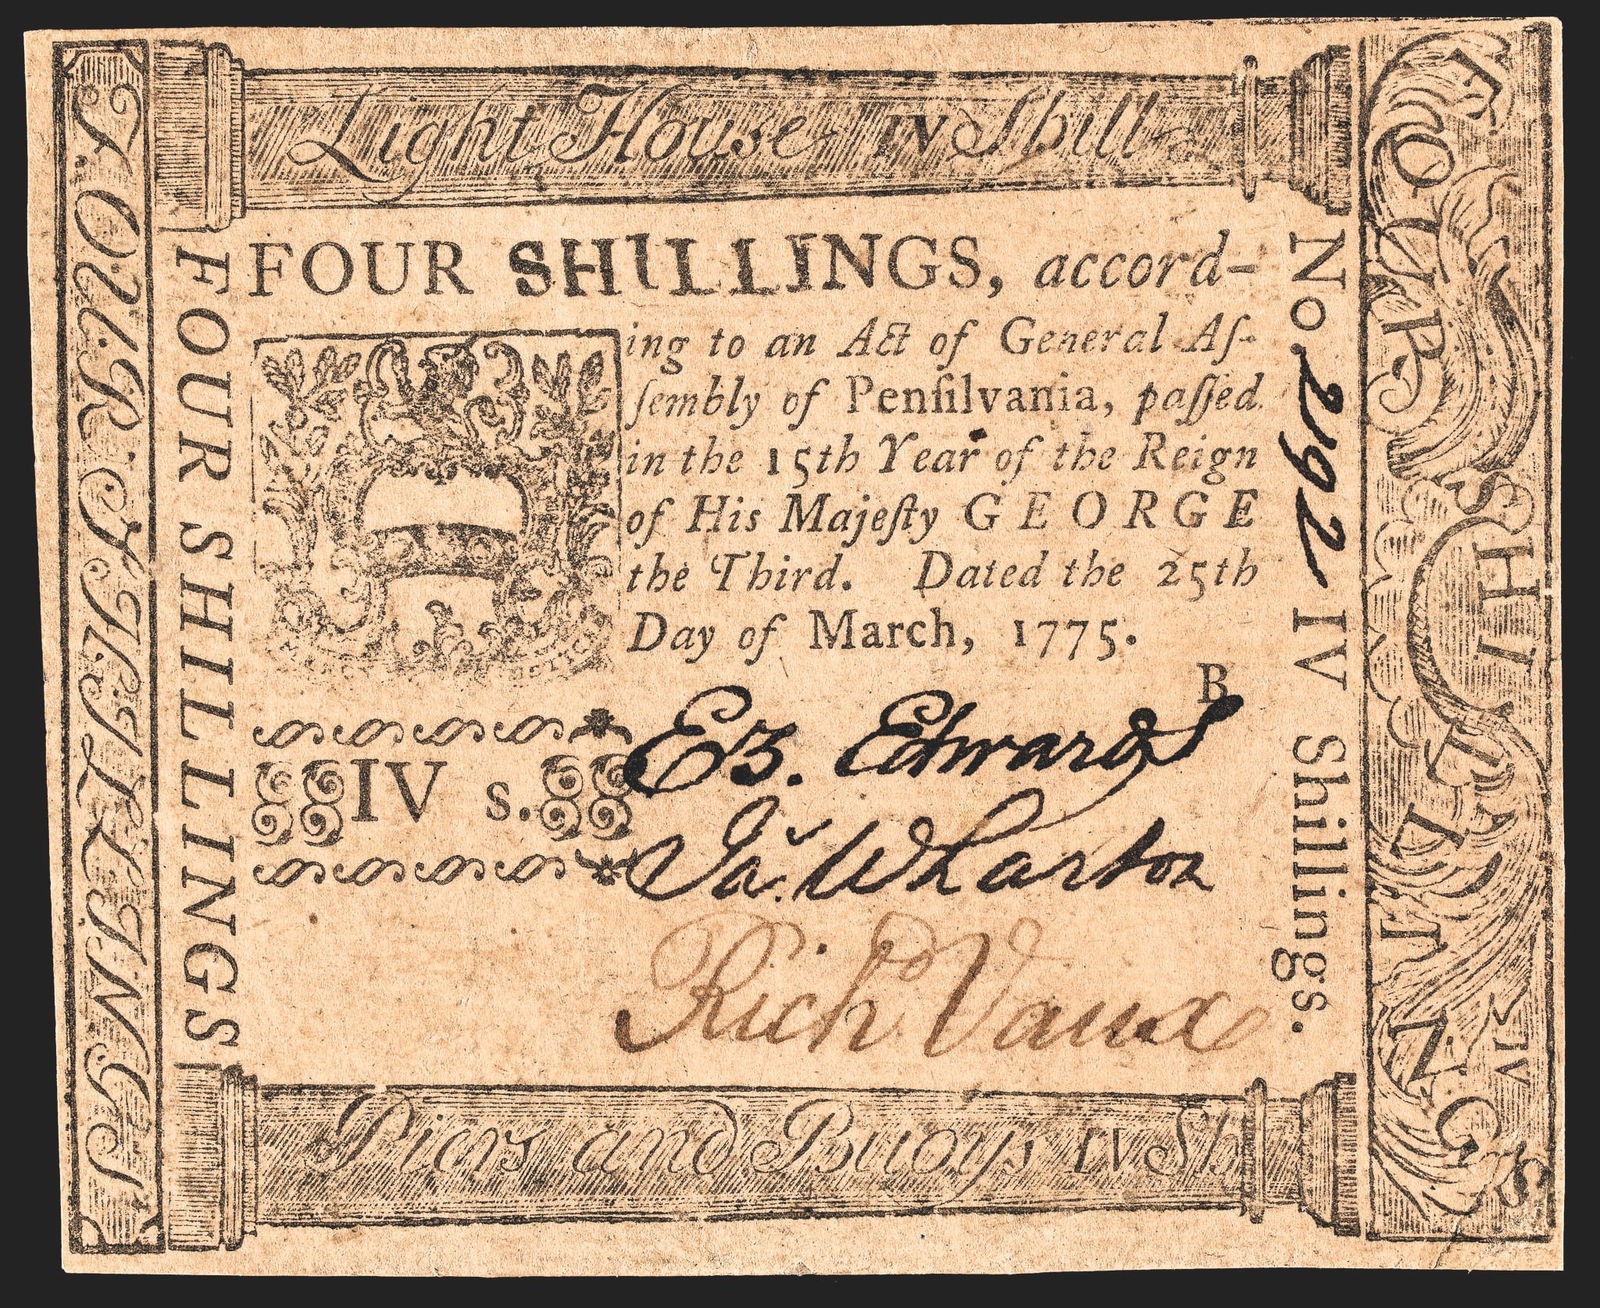 Light House IV Shill
FOUR SHILLINGS
FOUR SHILLINGS
FOUR SHILLINGS, accord-
ing to an Act of General Aſ-
ſembly of Penſilvania, paſſed
in the 15th Year of the Reign
of His Majeſty GEORGE
the Third. Dated the 25th
Day of March, 1775.
B
IV s.
Ez. Edwards
Jas. Wharton
Richd Vaux
No. 2192 IV Shillings.
FOUR SHILLINGS
IV
Piers and Buoys IV Sh